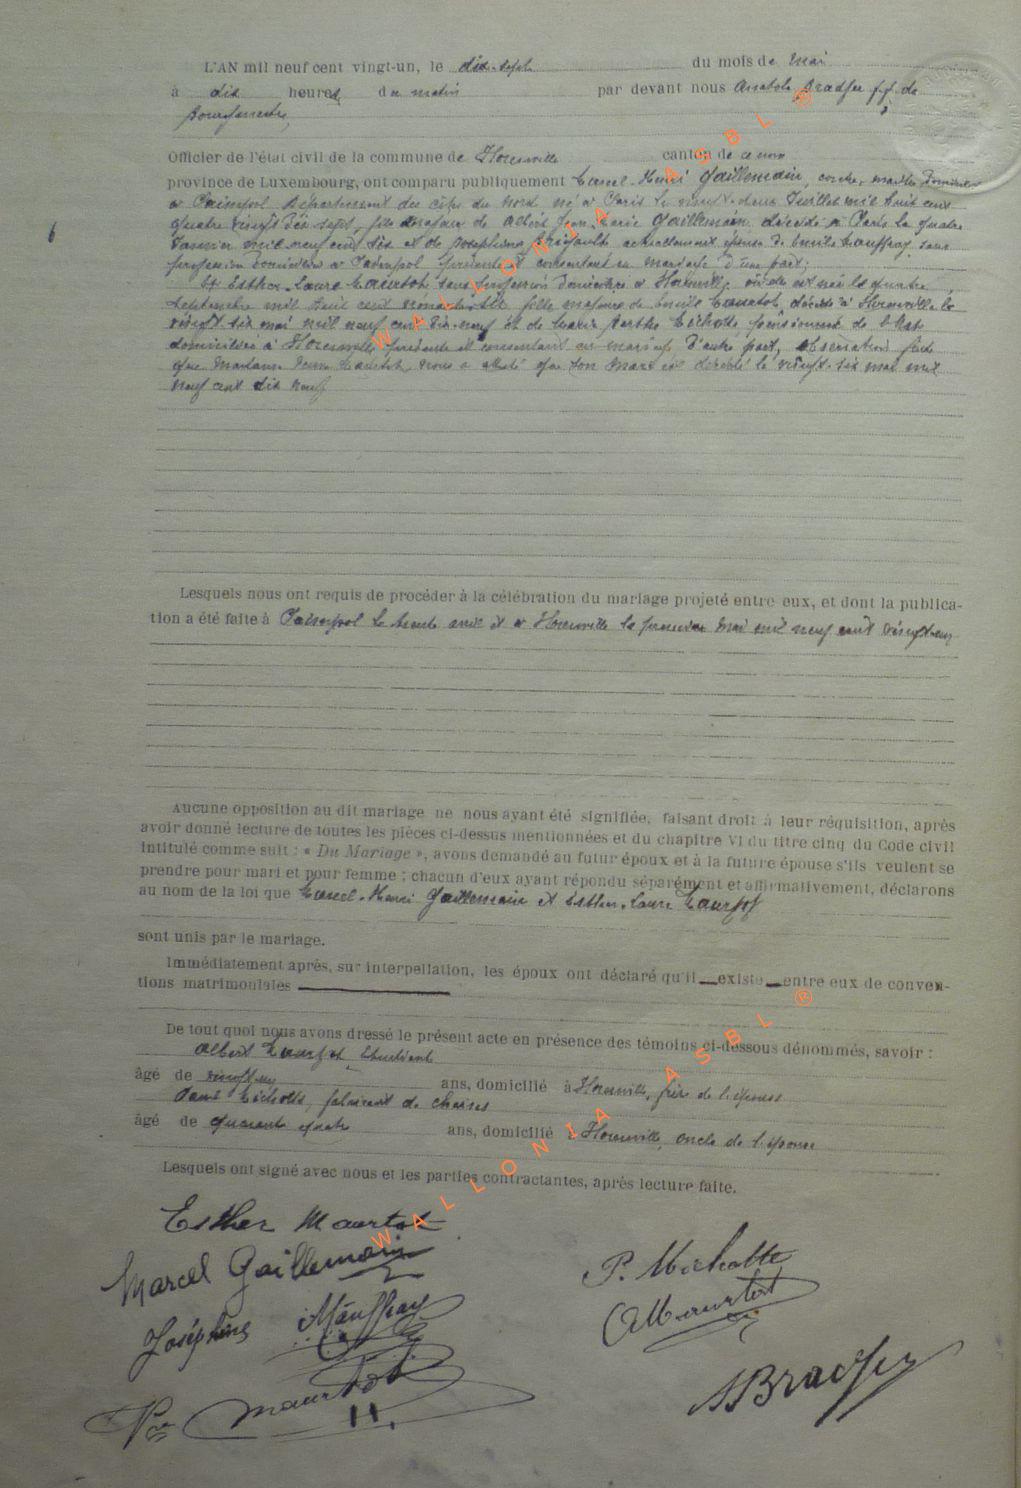 L'AN mil neuf cent vingt-un, le dix-sept du mois de mai
à dix heures du matin par devant nous Anatole Bradfer ff. de
Bourgmestre,
Officier de l'état civil de la commune de Florenville canton de ce nom
province de Luxembourg, ont comparu publiquement Marcel-Henri Gaillemain,
à Paimpol Département des Côtes du Nord né à Paris le neuf Juillet mil huit cent
quatre vingt dix sept, fils majeur de Albert Jean-Marie Gaillemain décédé à Paris le quatre
Janvier mil neuf cent dix et de Joséphine actuellement épouse de Emile Mauffray sans
profession domiciliée à Paimpol présente et consentant au mariage d'une part;
Et Esther-Laure Maurtot sans profession domiciliée à Florenville où elle est née le quatre
Septembre mil huit cent nonante fille majeure de Emile Maurtot, décédé à Florenville le
vingt six mai mil neuf cent dix-neuf et de Marie Berthe Michotte pensionnée de l'Etat
domiciliée à Florenville présente et consentant au mariage d'autre part, observation faite
que Madame Veuve Maurtot, nous a attesté que son mari est décédé le vingt-six mai mil
neuf cent dix neuf
6
Lesquels nous ont requis de procéder à la célébration du mariage projeté entre eux, et dont la publica-
tion a été faite à Paimpol le trente avril et à Florenville le premier mai mil neuf cent vingt-un
Aucune opposition au dit mariage ne nous ayant été signifiée, faisant droit à leur réquisition, après
avoir donné lecture de toutes les pièces ci-dessus mentionnées et du chapitre VI du titre cinq du Code civil
intitulé comme suit : « Du Mariage », avons demandé au futur époux et à la future épouse s'ils veulent se
prendre pour mari et pour femme ; chacun d'eux ayant répondu séparément et affirmativement, déclarons
au nom de la loi que Marcel-Henri Gaillemain et Esther-Laure Maurtot
sont unis par le mariage.
Immédiatement après, sur interpellation, les époux ont déclaré qu'il existe entre eux de conven-
tions matrimoniales
De tout quoi nous avons dressé le présent acte en présence des témoins ci-dessous dénommés, savoir :
Albert Maurtot, étudiant
âgé de vingt-un ans, domicilié à Florenville, frère de l'épouse
Paul Michotte, fabricant de chaises
âgé de quarante quatre ans, domicilié à Florenville, oncle de l'épouse
Lesquels ont signé avec nous et les parties contractantes, après lecture faite.
Esther Maurtot
Marcel Gaillemain
P. Michotte
Joséphine Mauffray
A Maurtot
Vve Maurtot
A Bradfer
WALLONIA ASBL ®
WALLONIA ASBL ®